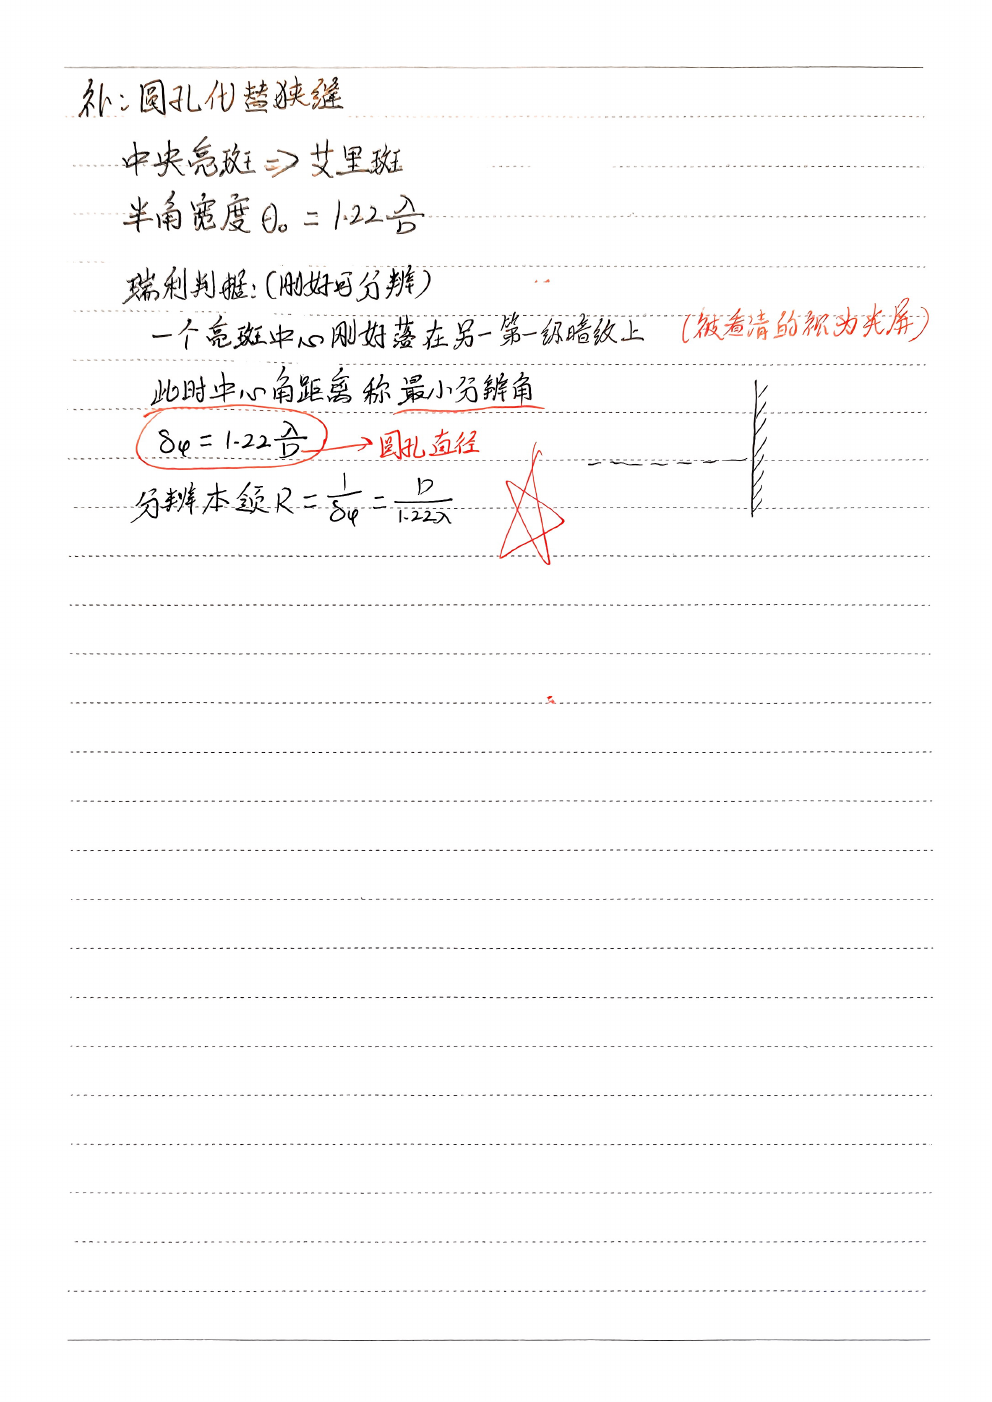 补：圆孔代替狭缝
中央亮斑 => 艾里斑
半角宽度 θ₀ = 1.22 λ/D
瑞利判据：(刚好可分辨)
一个亮斑中心刚好落在另一第一级暗纹上 (被看清的视为光屏)
此时中心角距离称 最小分辨角
δφ = 1.22 λ/D → 圆孔直径
分辨本领 R = 1/δφ = D/1.22λ